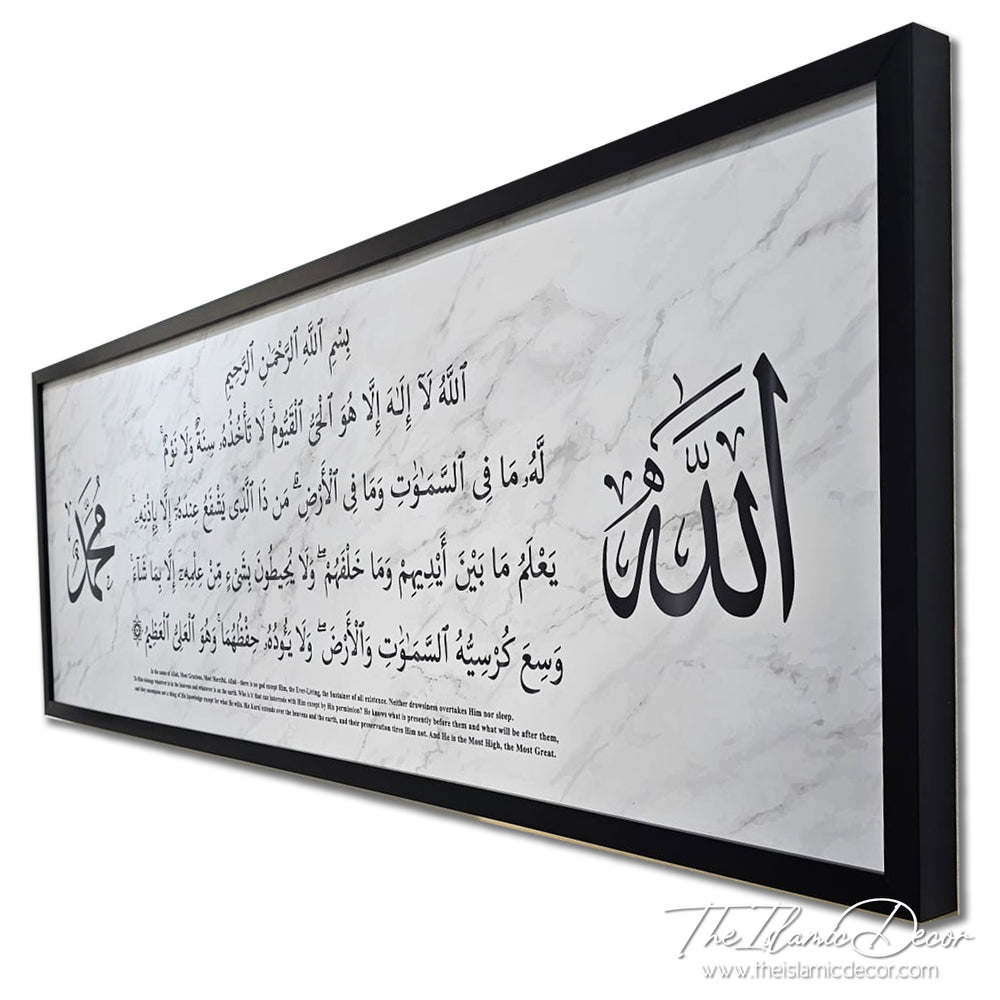 الله
بِسْمِ ٱللَّهِ ٱلرَّحْمَـٰنِ ٱلرَّحِيمِ
ٱللَّهُ لَآ إِلَـٰهَ إِلَّا هُوَ ٱلْحَىُّ ٱلْقَيُّومُ ۚ لَا تَأْخُذُهُۥ سِنَةٌ وَلَا نَوْمٌ ۚ
لَّهُۥ مَا فِى ٱلسَّمَـٰوَٰتِ وَمَا فِى ٱلْأَرْضِ ۗ مَن ذَا ٱلَّذِى يَشْفَعُ عِندَهُۥٓ إِلَّا بِإِذْنِهِۦ ۚ
يَعْلَمُ مَا بَيْنَ أَيْدِيهِمْ وَمَا خَلْفَهُمْ ۖ وَلَا يُحِيطُونَ بِشَىْءٍ مِّنْ عِلْمِهِۦٓ إِلَّا بِمَا شَآءَ ۚ
وَسِعَ كُرْسِيُّهُ ٱلسَّمَـٰوَٰتِ وَٱلْأَرْضَ ۖ وَلَا يَـُٔودُهُۥ حِفْظُهُمَا ۚ وَهُوَ ٱلْعَلِىُّ ٱلْعَظِيمُ
محمد
In the name of Allah, Most Gracious, Most Merciful. Allah - there is no god except Him, the Ever-Living, the Sustainer of all existence. Neither drowsiness overtakes Him nor sleep.
To Him belongs whatever is in the heavens and whatever is on the earth. Who is it that can intercede with Him except by His permission? He knows what is presently before them and what will be after them,
and they encompass not a thing of His knowledge except for what He wills. His Kursi extends over the heavens and the earth, and their preservation tires Him not. And He is the Most High, the Most Great.
The Islamic Decor
www.theislamicdecor.com